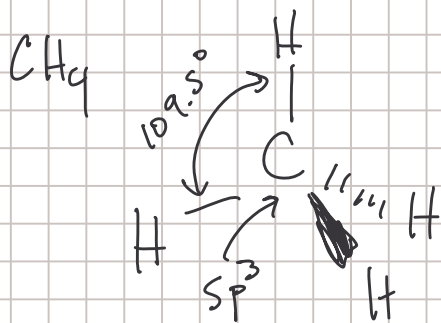 CH4
H
109.5°
C
H
H
sp3
H